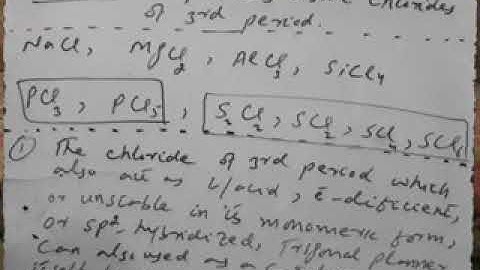 chlorides
of 3rd period.
NaCl, MgCl2, AlCl3, SiCl4
PCl3, PCl5, S2Cl2, SCl2, SCl4, SCl6
① The chloride of 3rd period which
also act as L/acid, ē-dificient,
or unstable in its monomeric form,
or sp2-hybridized, Trigonal planner
Can also used as a